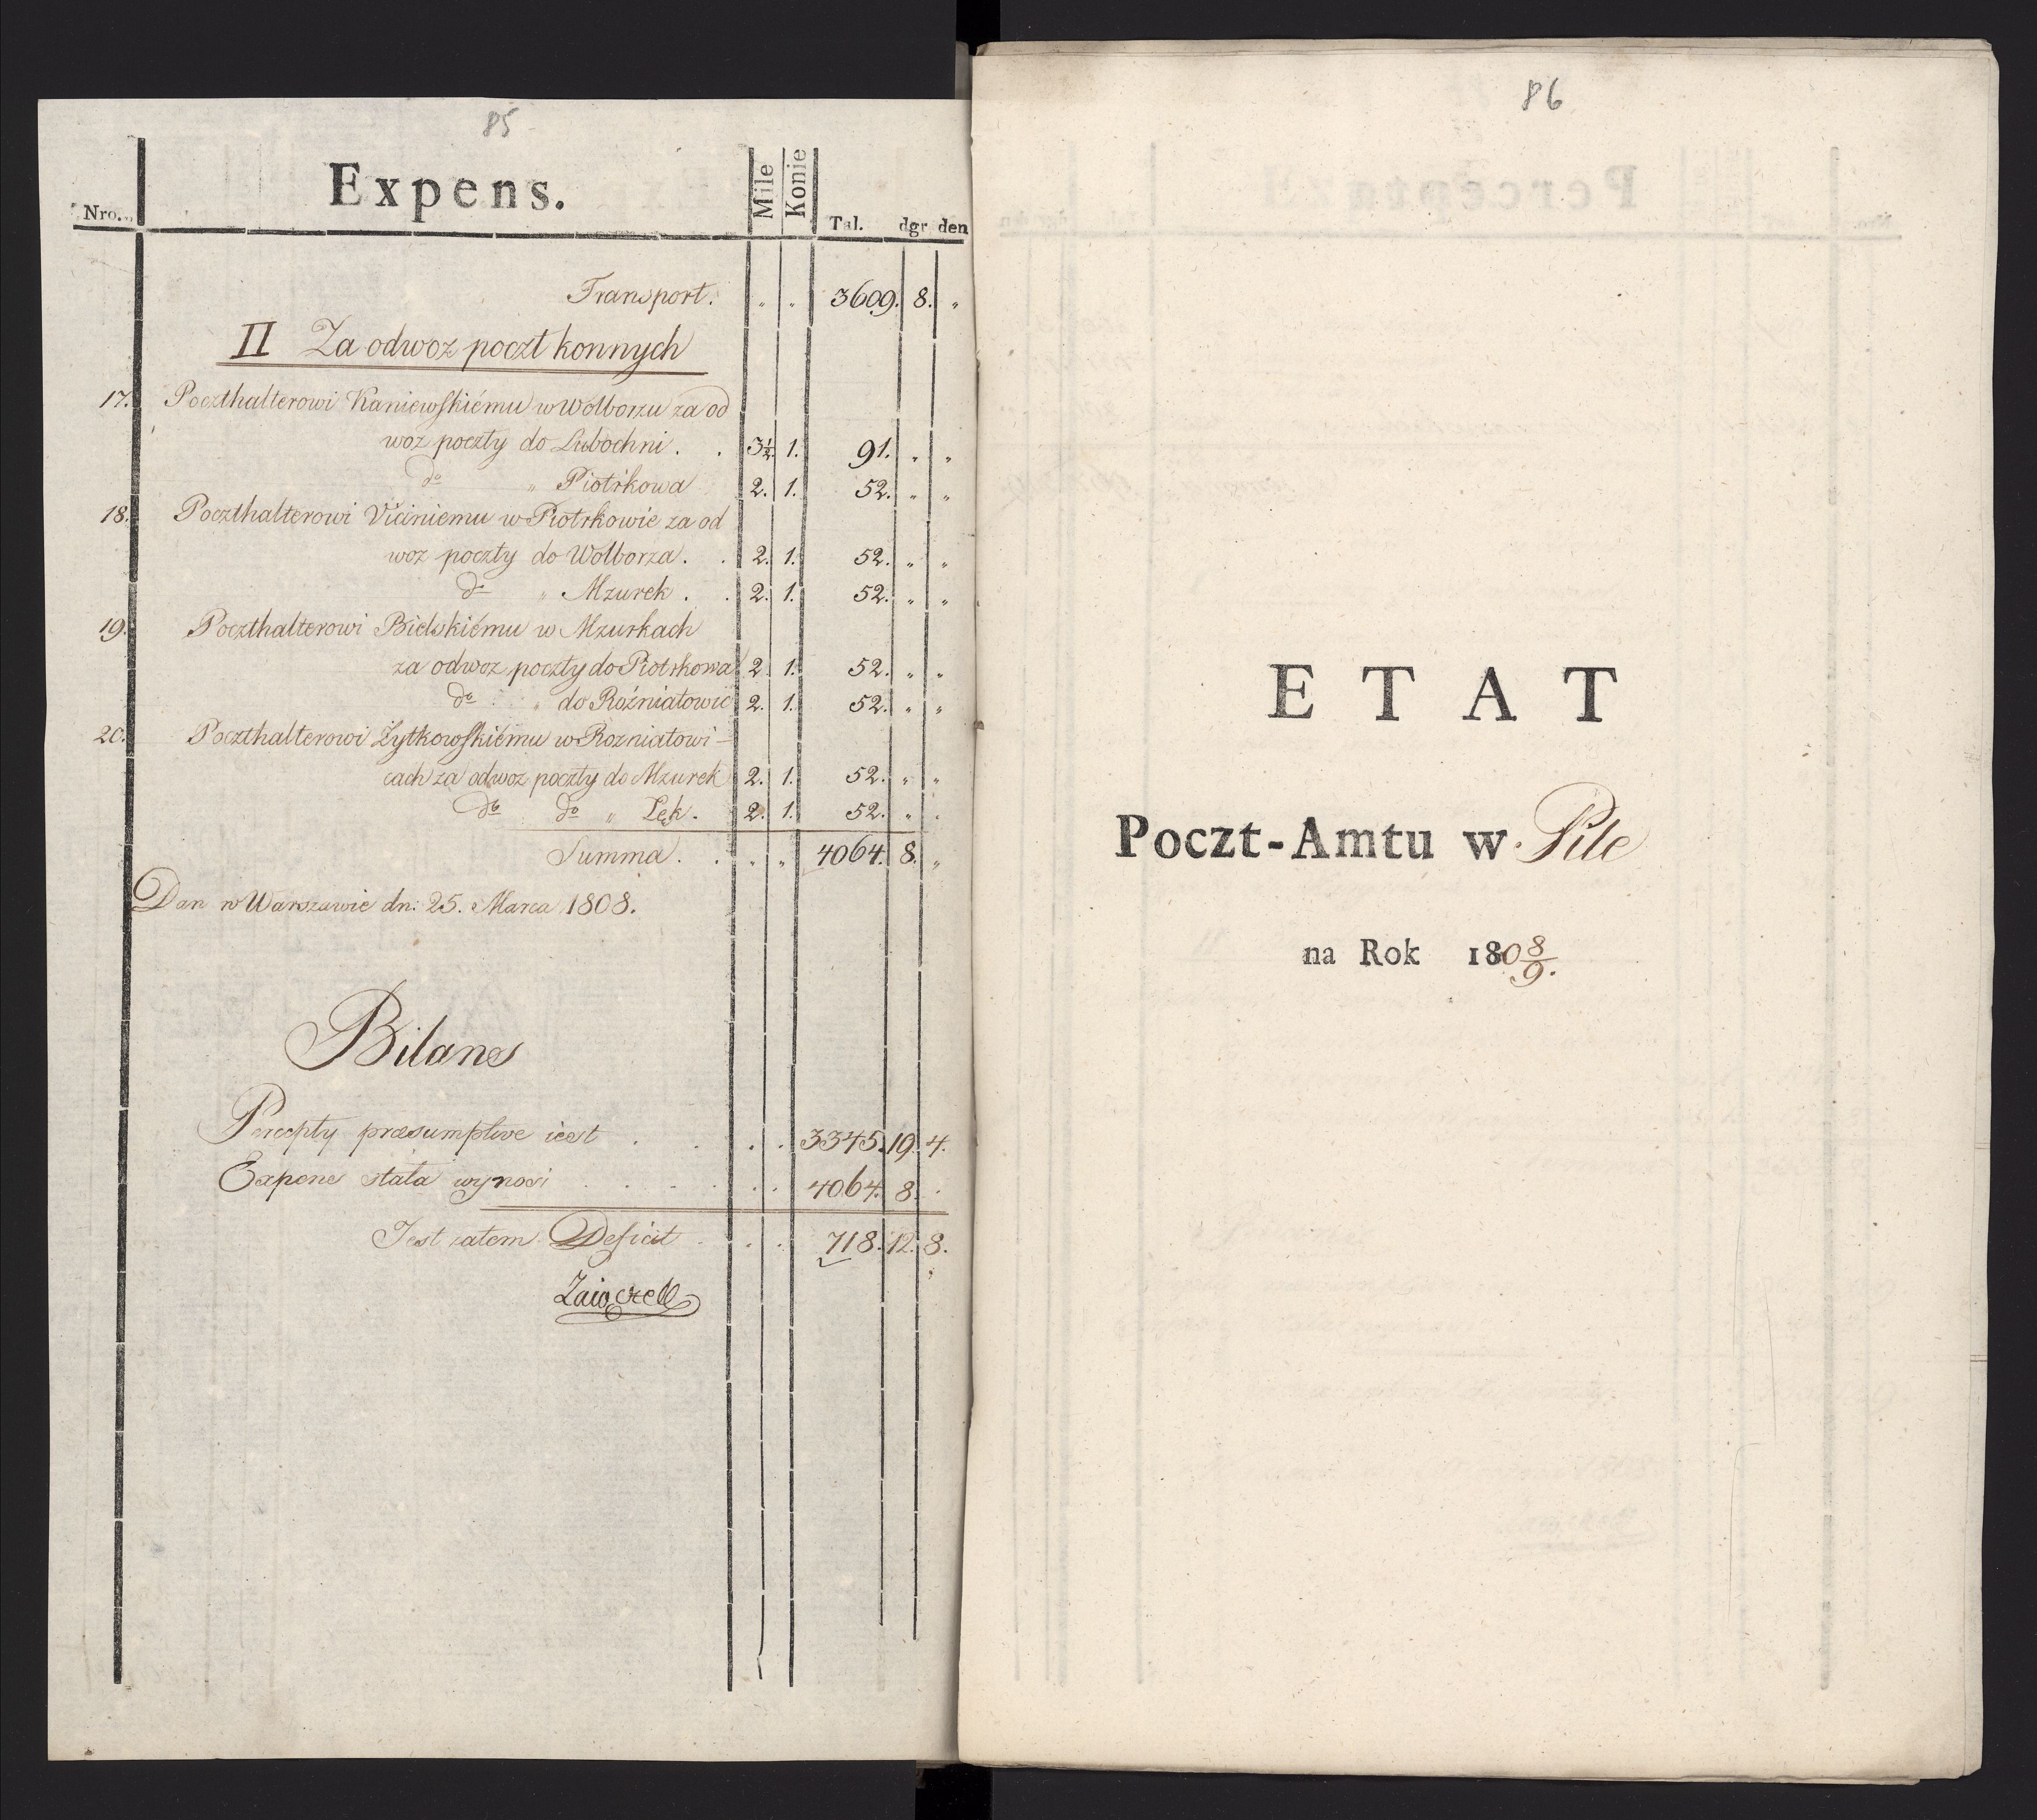 85
Expens.
Nro. Mile Konie Tal. dgr den
Transport. " " 3609. 8. "
II Za odwoz poczt konnych
17. Poczthalterowi Kaniewskiému w Wolborzu za od
woz poczty do Lubochni . . 3½ 1. 91. " "
do " Piotrkowa 2. 1. 52. " "
18. Poczthalterowi Viciniemu w Piotrkowie za od
woz poczty do Wolborza . . 2. 1. 52. " "
do " Mzurek . . 2. 1. 52. " "
19. Poczthalterowi Bielskiému w Mzurkach
za odwoz poczty do Piotrkowa 2 1. 52. " "
do " do Rożniatowic 2. 1. 52. " "
20. Poczthalterowi Żytkowskiému w Rozniatowi-
cach za odwoz poczty do Mzurek 2. 1. 52. " "
do do " Lęk. 2. 1. 52. " .
Summa . . . " 4064. 8. "
Dan w Warszawie dn: 25. Marca 1808.
Bilans
Percepty præsumptive iest . . . . 3345. 19. 4.
Expens stała wynosi . . . . . . 4064. 8. .
Jest zatem Deficit . . . 718. 12. 8.
Zaiączek
86
ETAT
Poczt-Amtu w Pile
na Rok 180 8/9.